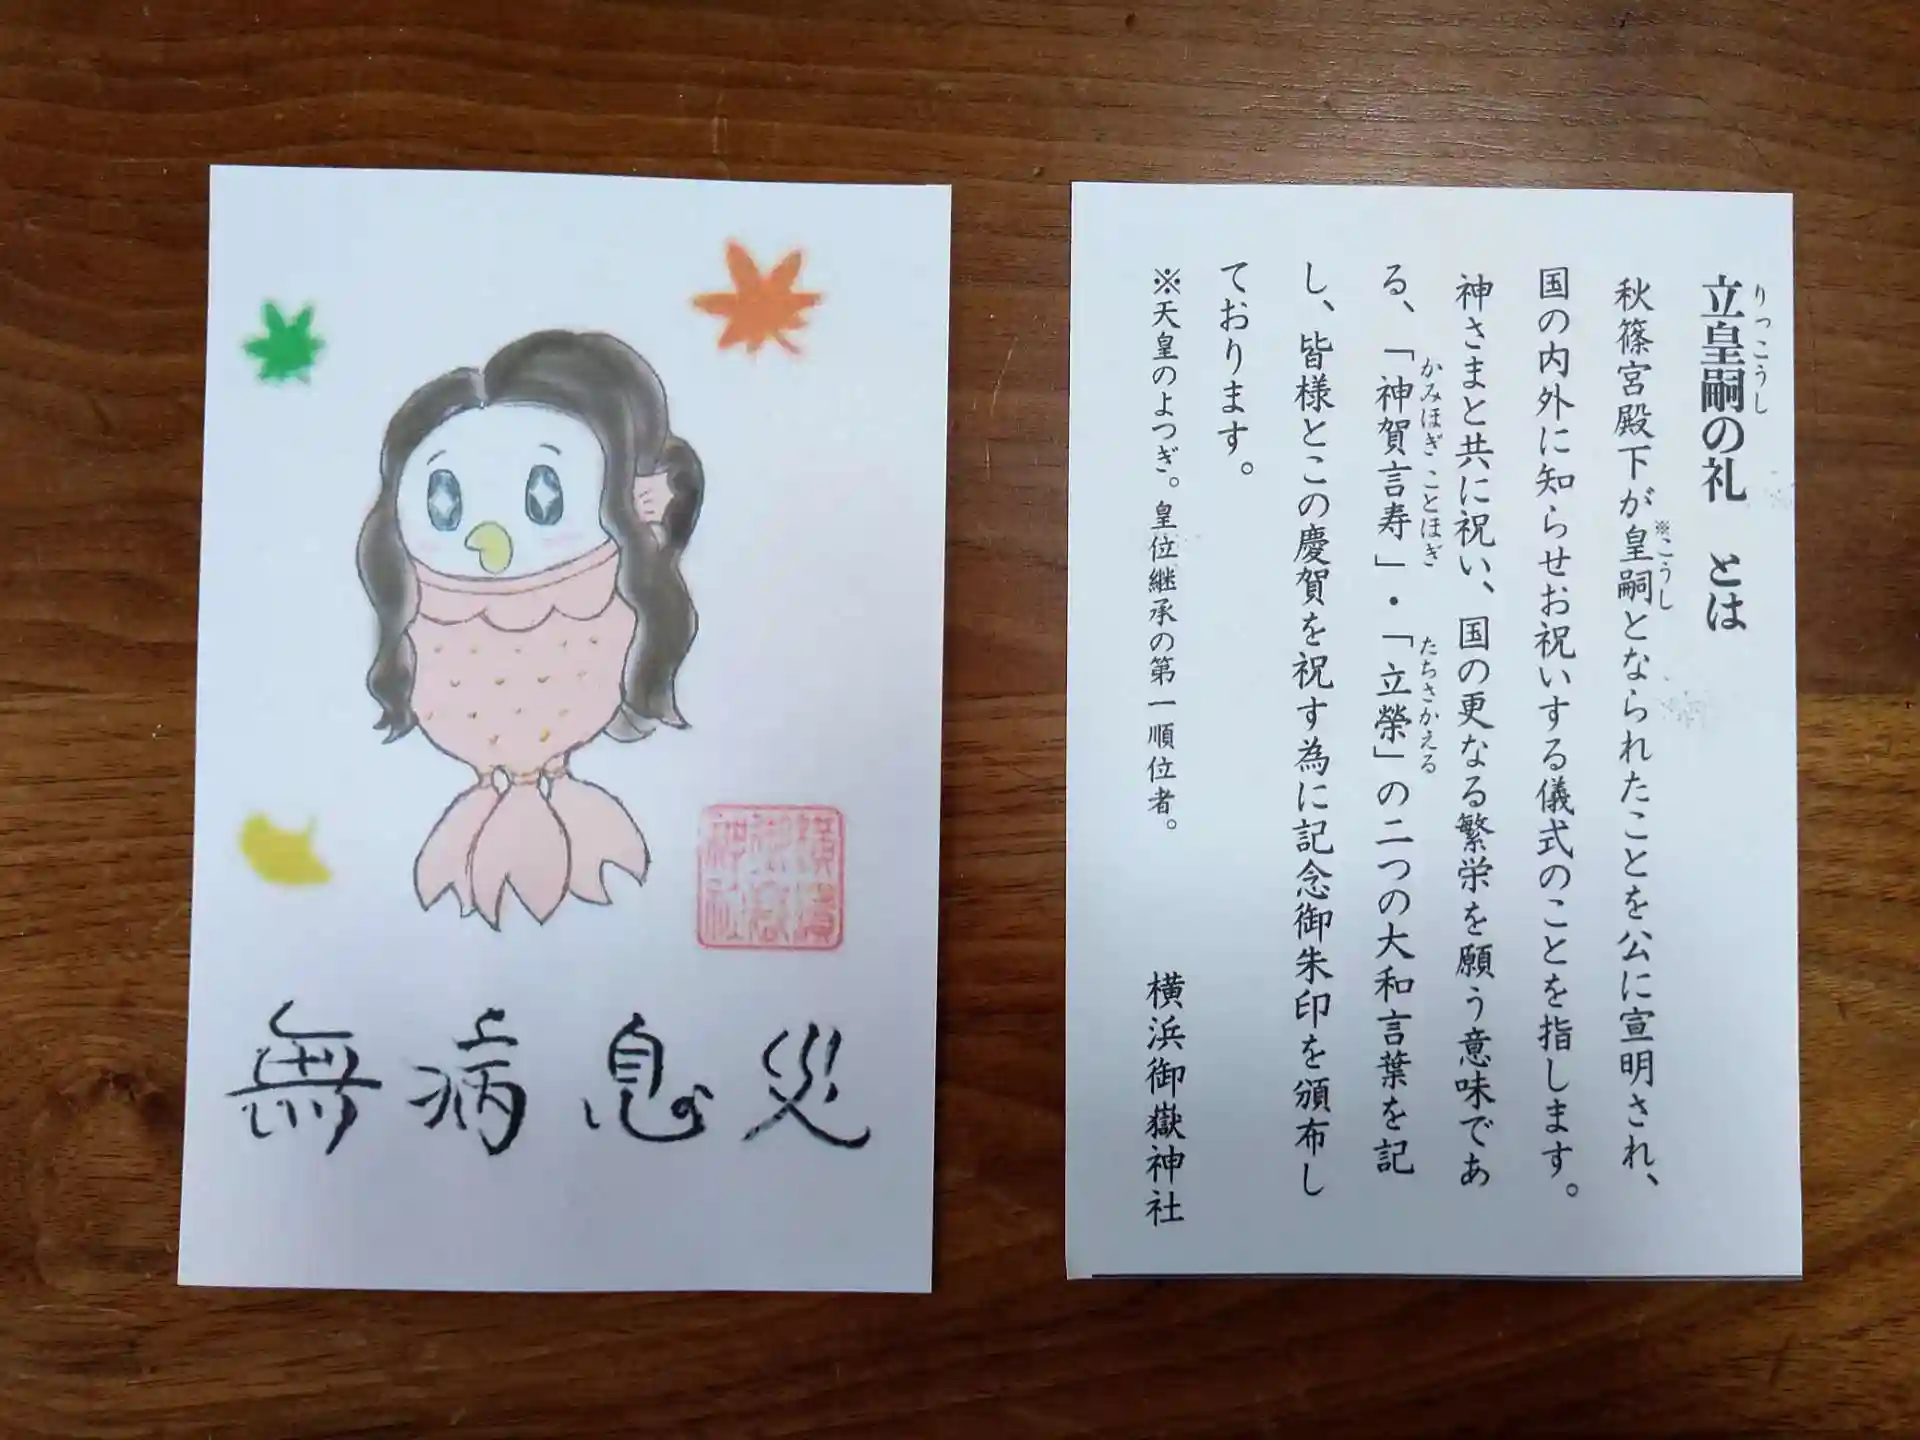 無病息災
横濱
御嶽
神社
りっこうし
立皇嗣の礼 とは
秋篠宮殿下が皇嗣となられたことを公に宣明され、
※こうし
国の内外に知らせお祝いする儀式のことを指します。
神さまと共に祝い、国の更なる繁栄を願う意味であ
かみほぎ ことほぎ たちさかえる
る、「神賀言寿」・「立榮」の二つの大和言葉を記
し、皆様とこの慶賀を祝す為に記念御朱印を頒布し
ております。
※天皇のよつぎ。皇位継承の第一順位者。
横浜御嶽神社